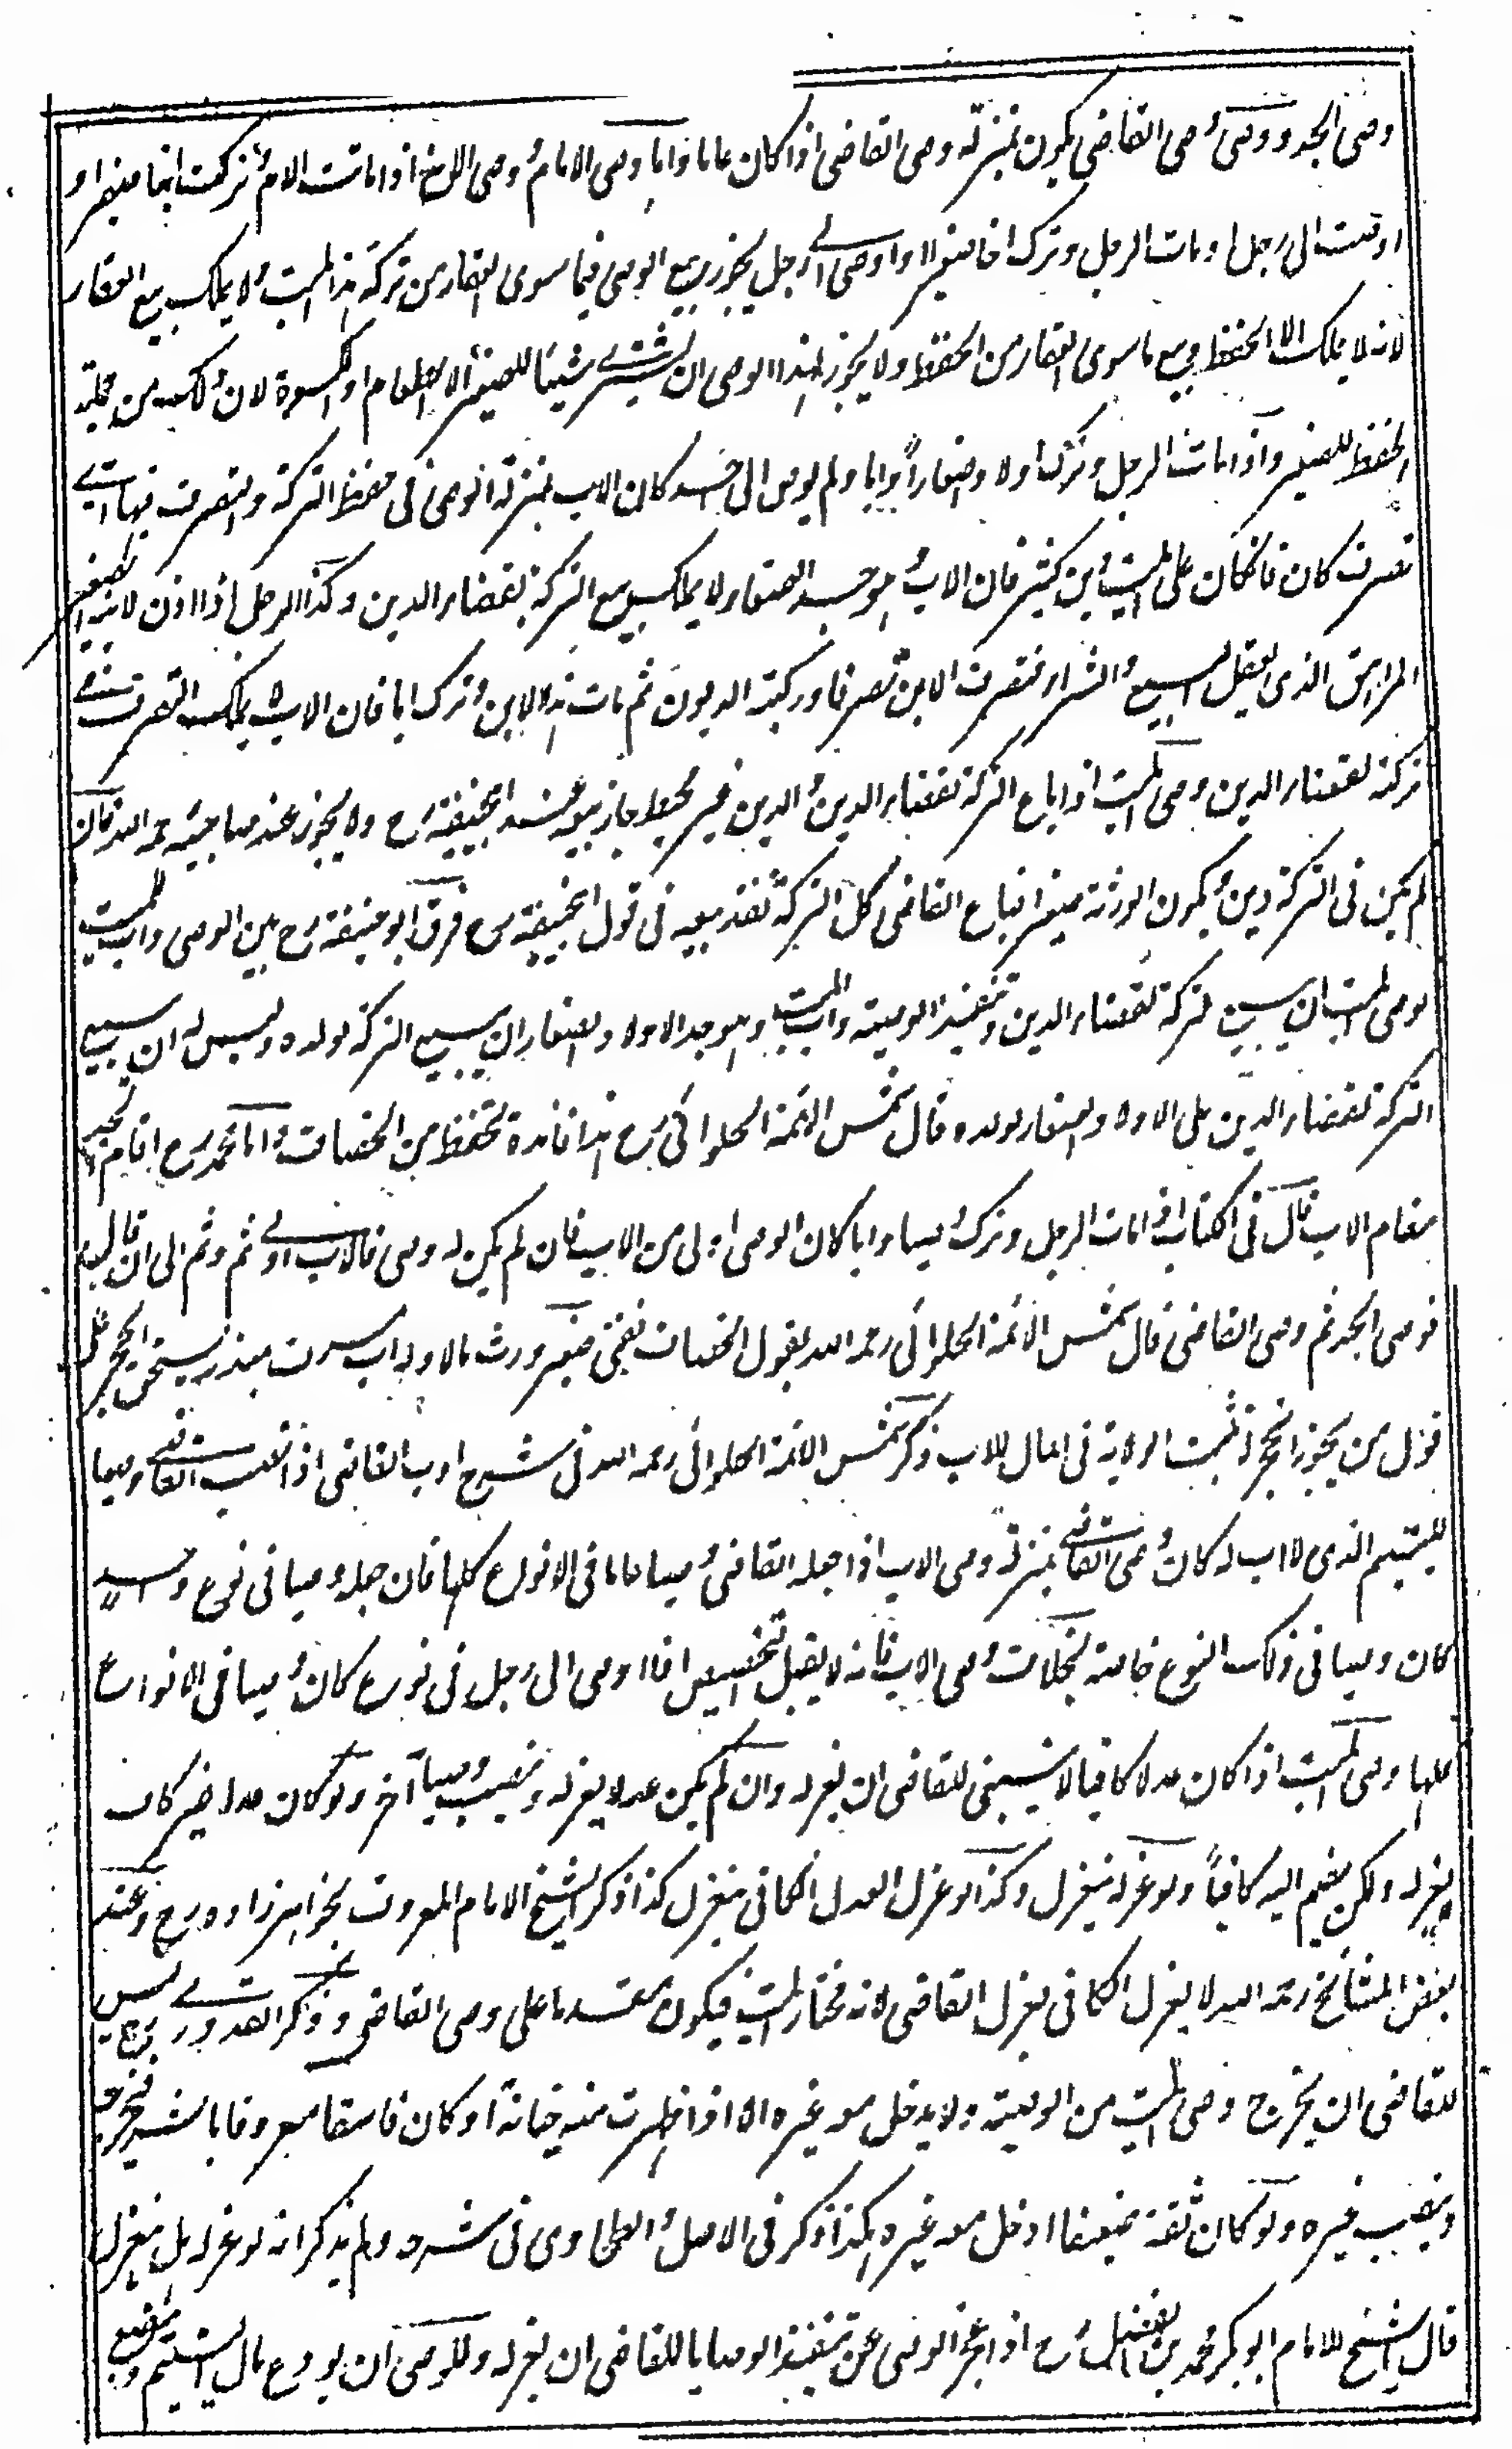 وصى الجد ووصى وصى القاضى يكون بمنزلة وصى القاضى اذا كان عاما واما وصى الام ووصى الاخ اذا ماتت الام وتركت ابنا صغيرا و
اوصت الى رجل او مات الرجل وترك اخا صغيرا واوصى الى رجل يجوز بيع الوصى فيما سوى العقار من تركة هذا الميت ولا يملك بيع العقار
لانه لا يملك الا الحفظ وبيع ما سوى العقار من الحفظ ولا يجوز لهذا الوصى ان يشترى شيئا للصغير الا الطعام او الكسوة لان ذلك من جملة
الحفظ للصغير واذا مات الرجل وترك اولادا صغارا وابا ولم يوص الى احد كان الاب بمنزلة الوصى فى حفظ التركة والتصرف فيها اى
تصرف كان فان كان على الميت دين كثير فان الاب وهو جد الصغار لا يملك بيع التركة بقضاء الدين وكذا الرجل اذا اذن لابنه الصغير
المراهق الذى يعقل البيع والشراء فتصرف الابن تصرفا وركبته الديون ثم مات هذا الابن وترك ابا فان الاب لا يملك التصرف فى
تركته لقضاء الدين وصى الميت اذا باع التركة لقضاء الدين والدين غير محيط جاز بيعه عند ابيحنيفة رح ولا يجوز عند صاحبيه رحمهما الله فان
لم يكن فى التركة دين ويكون الورثة صغيرا فباع القاضى كل التركة نفذ بيعه فى قول ابيحنيفة رح فرق ابو حنيفة رح بين الوصى واب الميت
لوصى الميت ان يبيع التركة لقضاء الدين وتنفيذ الوصية واب الميت وهو جد الاولاد الصغار ان يبيع التركة لولده وليس له ان يبيع
التركة لقضاء الدين على الاولاد الصغار لولده وقال شمس الائمة الحلوائى رح هذا فائدة تحفظ من الخصاف واما محمد رح اقام الجد
مقام الاب قال فى الكتاب اذا مات الرجل وترك وصيا وابا كان الوصى اولى من الاب فان لم يكن له وصى فالاب اولى ثم وثم الى ان قال
فوصى الجد ثم وصى القاضى قال شمس الائمة الحلوائى رحمه الله بقول الخصاف نفتى صغير ورث مالا وله اب مسرف مبذر يستحق الحجر على
قول من يجوز الحجر لا تثبت الولاية فى المال للاب ذكر شمس الائمة الحلوائى رحمه الله فى شرح ادب القاضى اذا نصب القاضى وصيا
لليتيم الذى لا اب له كان وصى القاضى بمنزلة وصى الاب اذا جعله القاضى وصيا عاما فى الانواع كلها فان جعله وصيا فى نوع واحد
كان وصيا فى ذلك النوع خاصة بخلاف وصى الاب فانه لا يقبل التخصيص اذا اوصى الى رجل فى نوع كان وصيا فى الانواع
كلها وصى الميت اذا كان عدلا كافيا لا ينبغى للقاضى ان يعزله وان لم يكن عدلا يعزله وينصب وصيا آخر ولو كان عدلا غير كاف
لا يعزله ولكن يضم اليه كافيا ولو عزله ينعزل وكذا لو عزل العدل الكافى ينعزل كذا ذكر الشيخ الامام المعروف بخواهر زاده رح وعند
بعض المشائخ رحمه الله لا يعزل الكافى بعزل القاضى لانه مختار الميت فيكون مقدما على وصى القاضى وذكر القدورى رح ليس
للقاضى ان يخرج وصى الميت من الوصية ولا يدخل معه غيره الا اذا ظهرت منه خيانة او كان فاسقا معروفا بالشر فيخرجه
وينصب غيره ولو كان ثقة ضعيفا ادخل معه غيره هكذا ذكر فى الاصل والطحاوى فى شرحه ولم يذكر انه لو عزله هل ينعزل
قال الشيخ الامام ابو بكر محمد بن الفضل رح اذا عجز الوصى عن تنفيذ الوصايا للقاضى ان يعزله وللوصى ان يودع مال اليتيم ويبضع